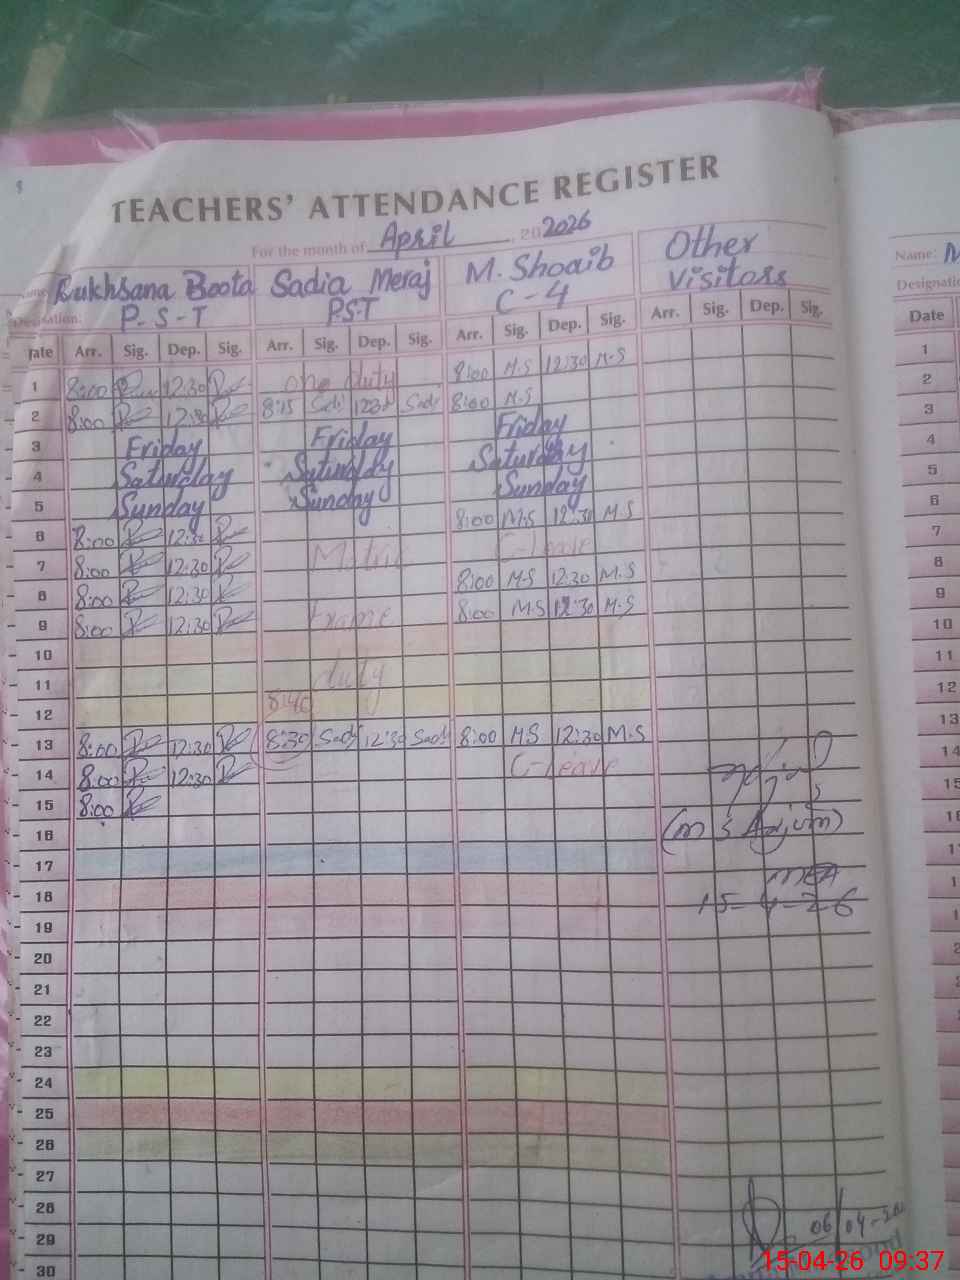 TEACHERS' ATTENDANCE REGISTER
For the month of April, 20 2026
Rukhsana Boota Sadia Meraj M. Shoaib Other Visitors Name:
Designation: P-S-T PST C-4 Designatio
Date Arr. Sig. Dep. Sig. Arr. Sig. Dep. Sig. Arr. Sig. Dep. Sig. Arr. Sig. Dep. Sig. Date
1 8:00 12:30 one duty 8:00 M.S 12:30 M.S 1
2 8:00 12:30 8:15 Sadi 1230 Sadi 8:00 M.S 2
3 Friday Friday Friday 3
4 Saturday Saturday Saturday 4
5 Sunday Sunday Sunday 5
6 8:00 12:30 8:00 M.S 12:30 M.S 6
7 8:00 12:30 Matric C-Leave 7
8 8:00 12:30 8:00 M.S 12:30 M.S 8
9 8:00 12:30 8:00 M.S 12:30 M.S 9
10 10
11 duty 11
12 8:40 12
13 8:00 12:30 8:30 Sadi 12:30 Sadi 8:00 M.S 12:30 M.S 13
14 8:00 12:30 C-Leave 14
15 8:00 15
16
17
MEA
18 15-4-26
19
20
21
22
23
24
25
26
27
28
29 06/04-
30
15-04-26 09:37